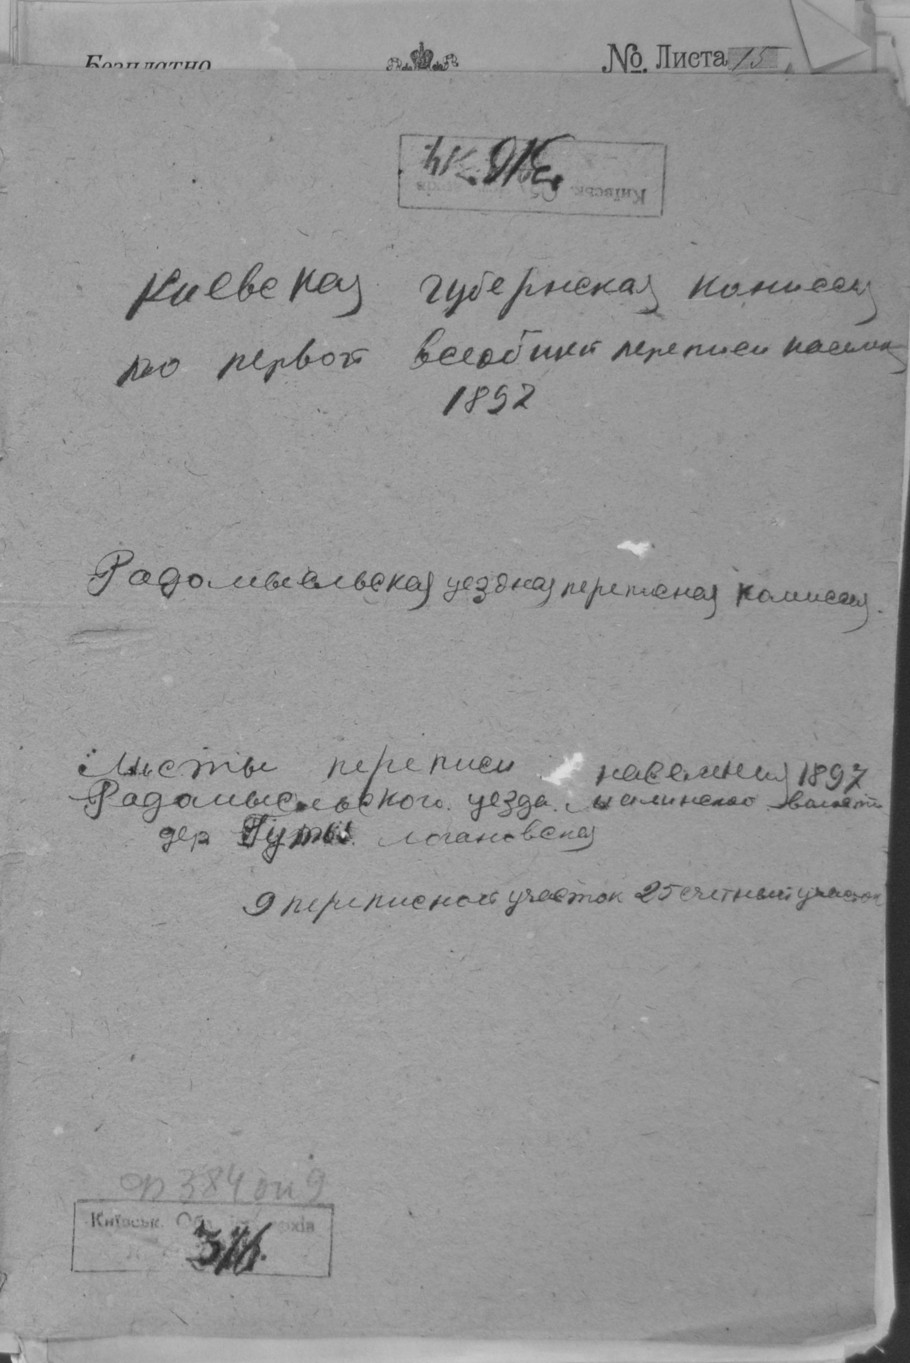 Безплатно
№ Листа 15
Киевская губернская комиссия
по первой всеобщей переписи населен
1897
Радомысльская уездная переписная комиссия.
Листы переписи населения 1897
Радомысльского уезда Малинской волости
дер Гуты Логановская
9 переписной участок 25 счетный участок
ф 384 оп 9
Київськ. Обл. архів